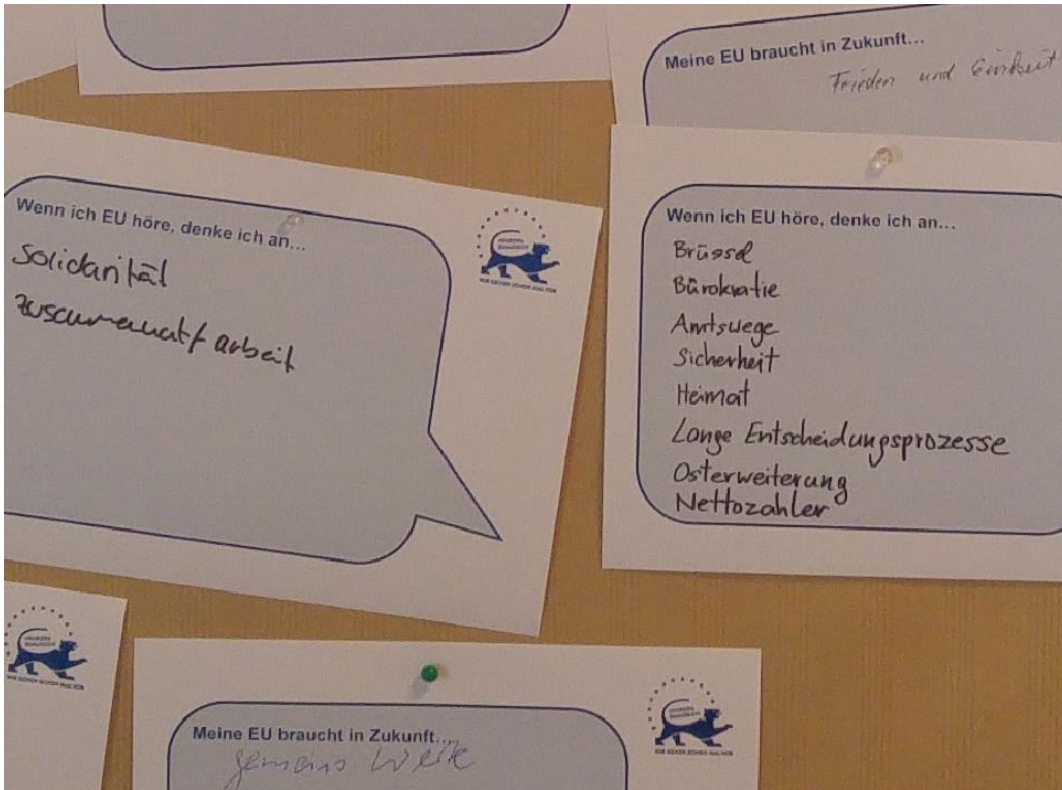 Meine EU braucht in Zukunft...
Frieden und Einheit
Wenn ich EU höre, denke ich an...
Solidarität
arbeit
Wenn ich EU höre, denke ich an...
Brüssel
Bürokratie
Amtswege
Sicherheit
Heimat
Lange Entscheidungsprozesse
Osterweiterung
Nettozahler
Meine EU braucht in Zukunft...